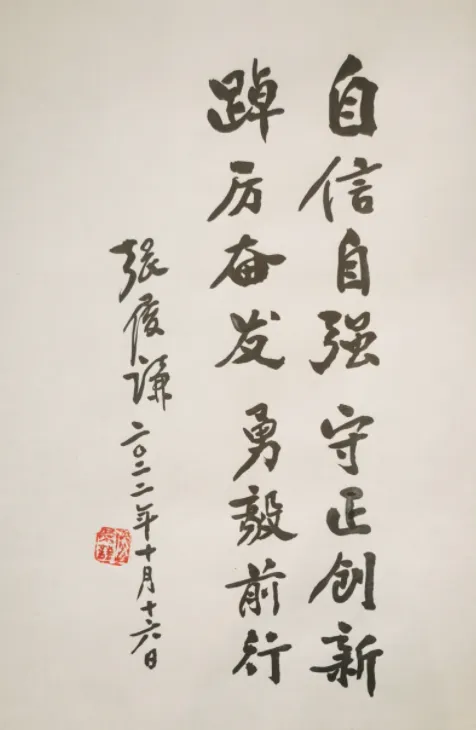 自信自强 守正创新
踔厉奋发 勇毅前行
張俊谦 二〇二二年十月十六日